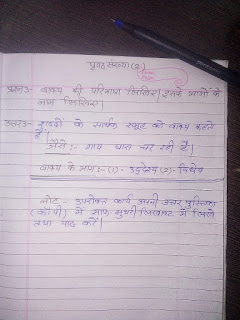 पृष्ठ संख्या (2)
प्रश्न3:- वाक्य की परिभाषा लिखिए। इसके भागों के
नाम लिखिए।
उत्तर3:- शब्दों के सार्थक समूह को वाक्य कहते
हैं।
जैसे:- गाय घास चर रही है।
वाक्य के भाग:- (1)- उद्देश्य (2)- विधेय
नोट:- उपरोक्त कार्य अपनी उत्तर पुस्तिका
(कॉपी) में साफ सुथरी लिखावट में लिखें
तथा याद करें।